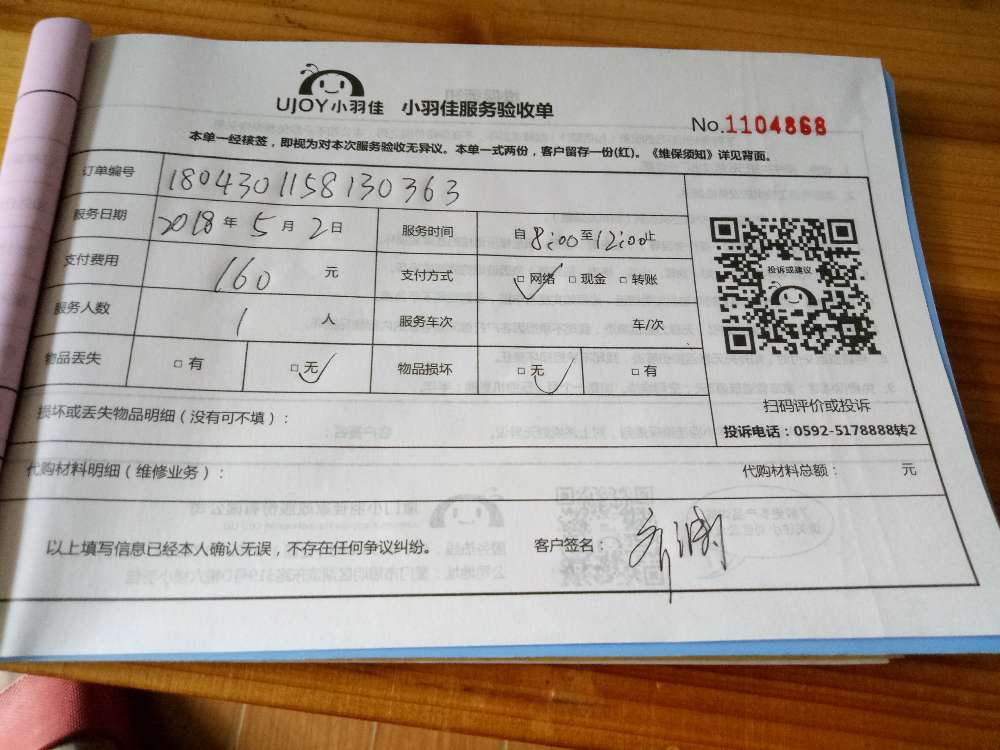 UJOY小羽佳 小羽佳服务验收单
No.1104868
本单一经核签，即视为对本次服务验收无异议。本单一式两份，客户留存一份(红)。《维保须知》详见背面。
订单编号 1804301158130363
服务日期 2018年5月2日 服务时间 自8:00至12:00止
支付费用 160 元 支付方式 □网络 □现金 □转账
服务人数 1 人 服务车次 车/次
物品丢失 □有 □无 物品损坏 □无 □有
投诉或建议
扫码评价或投诉
投诉电话：0592-5178888转2
损坏或丢失物品明细（没有可不填）：
代购材料明细（维修业务）： 代购材料总额： 元
以上填写信息已经本人确认无误，不存在任何争议纠纷。 客户签名：